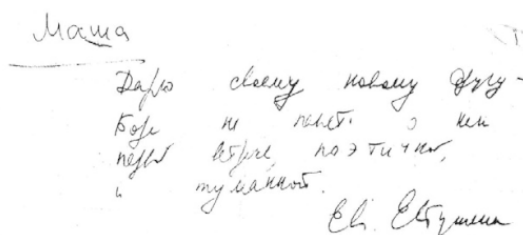 Маша
Дарю своему новому другу -
Боре на память о
первой встрече, поэтичной,
и туманной.
Ев. Евтушенко